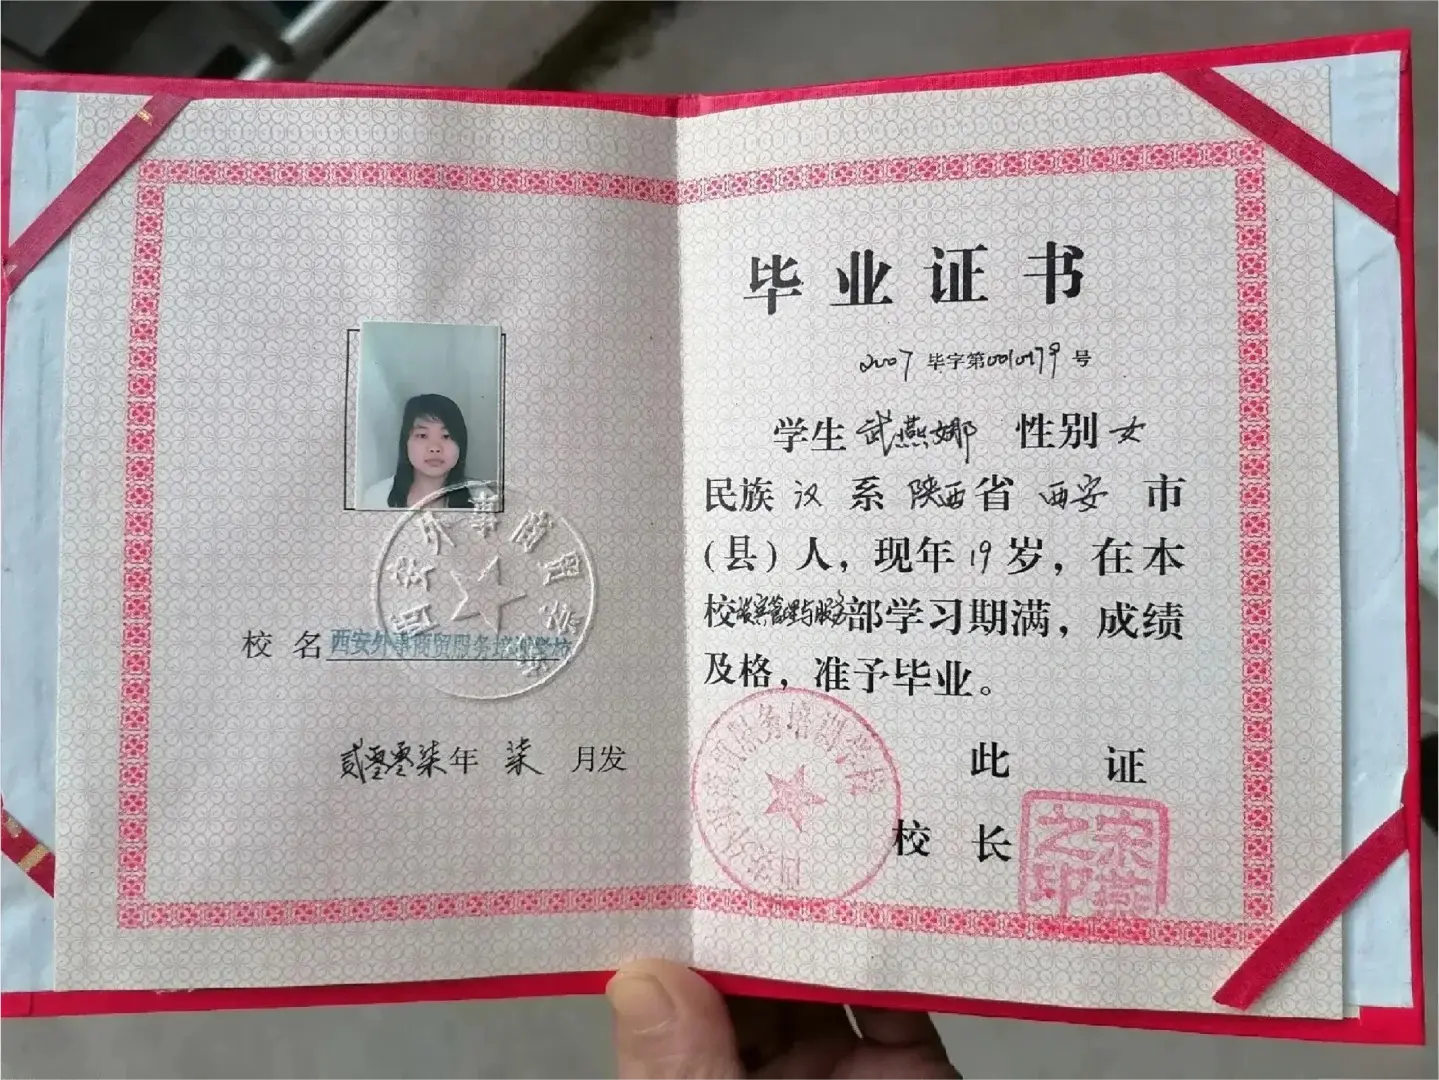 西安外事商贸
校 名 西安外事商贸服务培训学校
贰零零柒年 柒 月发
毕业证书
2007 毕字第0010179号
学生 武燕娜 性别 女
民族 汉 系 陕西 省 西安 市
(县)人，现年19岁，在本
校宾管理与服务部学习期满，成绩
及格，准予毕业。
此 证
校 长
宋燕之印
服务培训学校